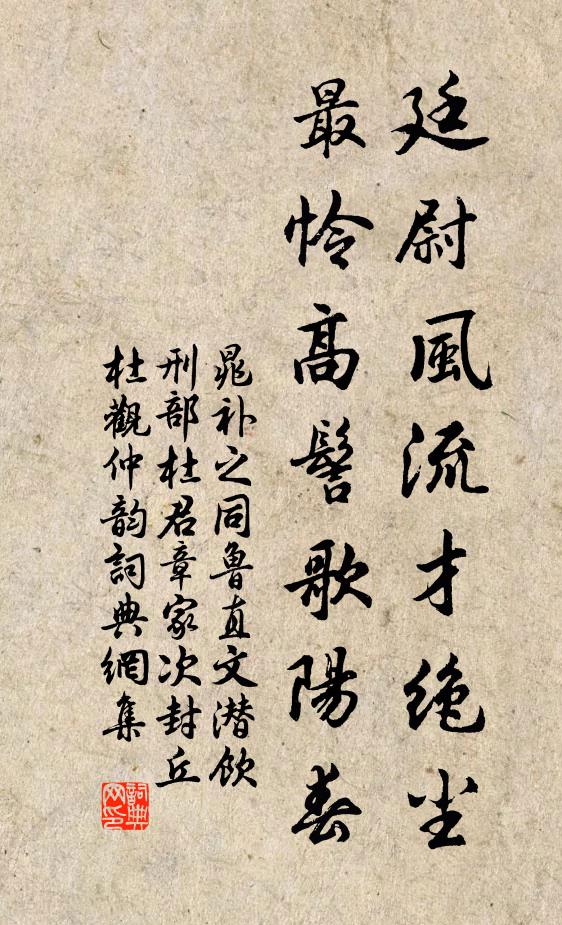 廷尉風流才绝尘
最怜高髻歌陽春
晁补之同魯直文潜飲
刑部杜君章家次封丘
杜觀仲韵詞典網集
詞典网印